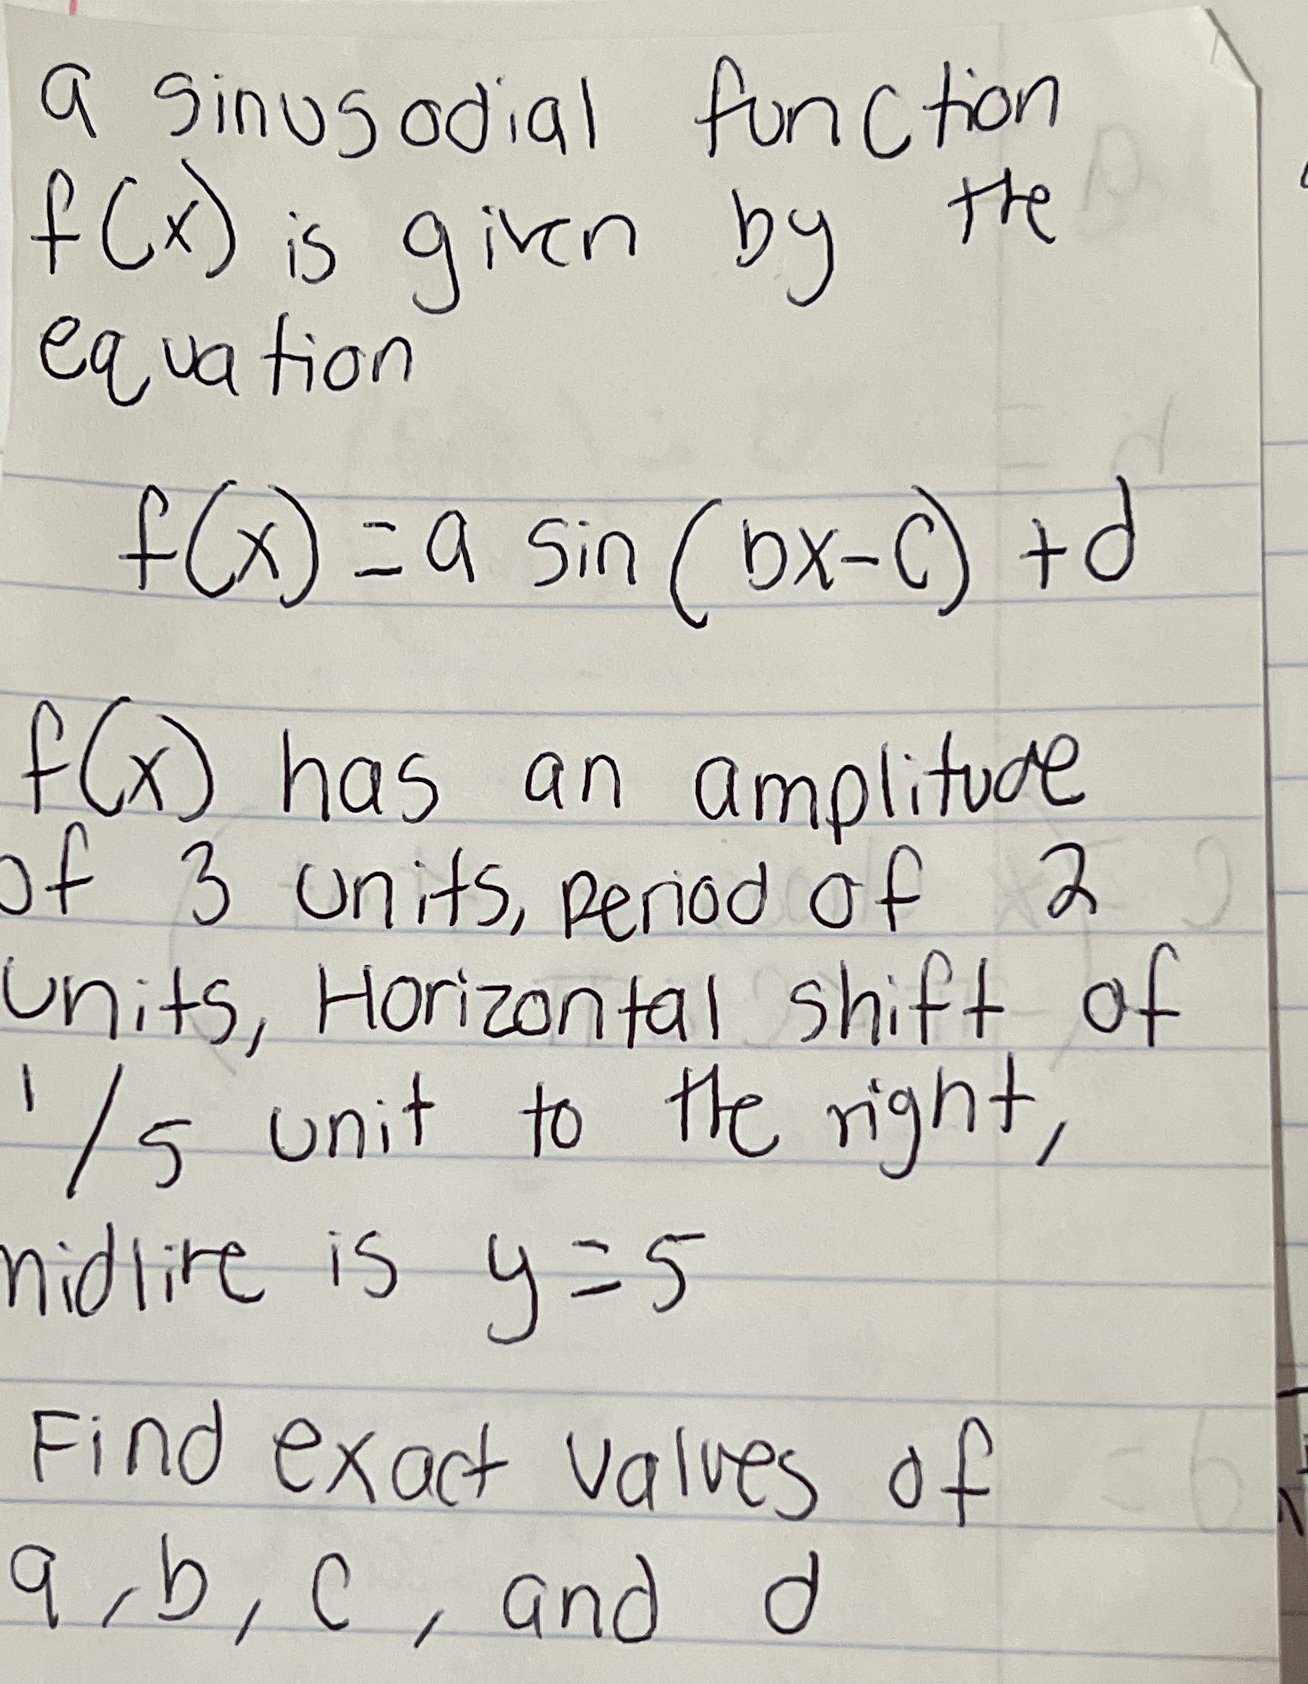 a sinusodial function
f(x) is given by the
equation
f(x) = a sin (bx-c) + d
f(x) has an amplitude
of 3 units, period of 2
units, Horizontal shift of
1/5 unit to the right,
midline is y=5
Find exact values of
a, b, c, and d